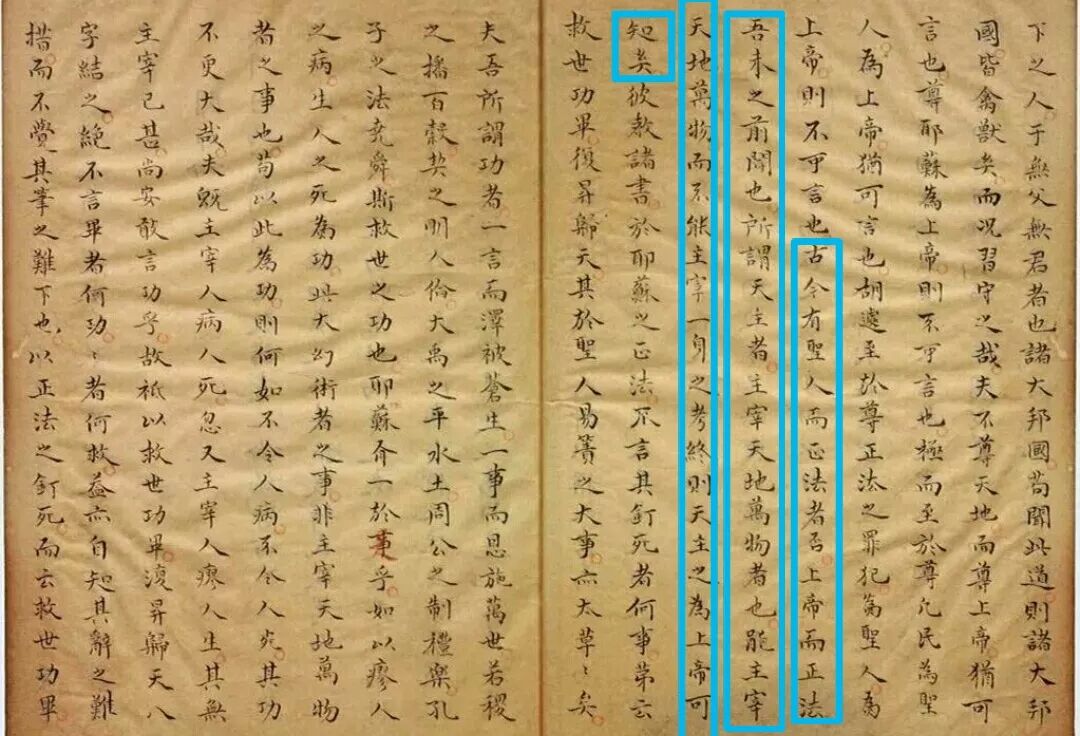 下之人于無父無君者也諸大邦國苟聞此道則諸大邦
國皆禽獸矣而况習守之哉夫不尊天地而尊上帝猶可
言也尊耶蘇為上帝則不可言也極而至於尊凢民為聖
人為上帝猶可言也胡遽至於尊正法之罪犯為聖人為
上帝則不可言也古今有聖人而正法者否上帝而正法
吾未之前聞也所謂天主者主宰天地萬物者也能主宰
天地萬物而不能主宰一身之考終則天主之為上帝可
知矣彼教諸書於耶蘇之正法不言其釘死者何事第云
救世功畢復昇歸天其於聖人易簀之大事亦太草〻矣
夫吾所謂功者一言而澤被蒼生一事而恩施萬世若稷
之播百穀契之明人倫大禹之平水土周公之制禮樂孔
子之法堯舜斯救世之功也耶蘇介一於事乎如以瘳人
之病生人之死為功此大幻術者之事非主宰天地萬物
者之事也苟以此為功則何如不令人病不令人死其功
不更大哉夫既主宰人病人死忽又主宰人瘳人生其無
主宰已甚尚安敢言功乎故祗以救世功畢復昇歸天八
字結之絶不言畢者何功〻者何救益亦自知其辭之難
措而不覺其筆之難下也以正法之釘死而云救世功畢